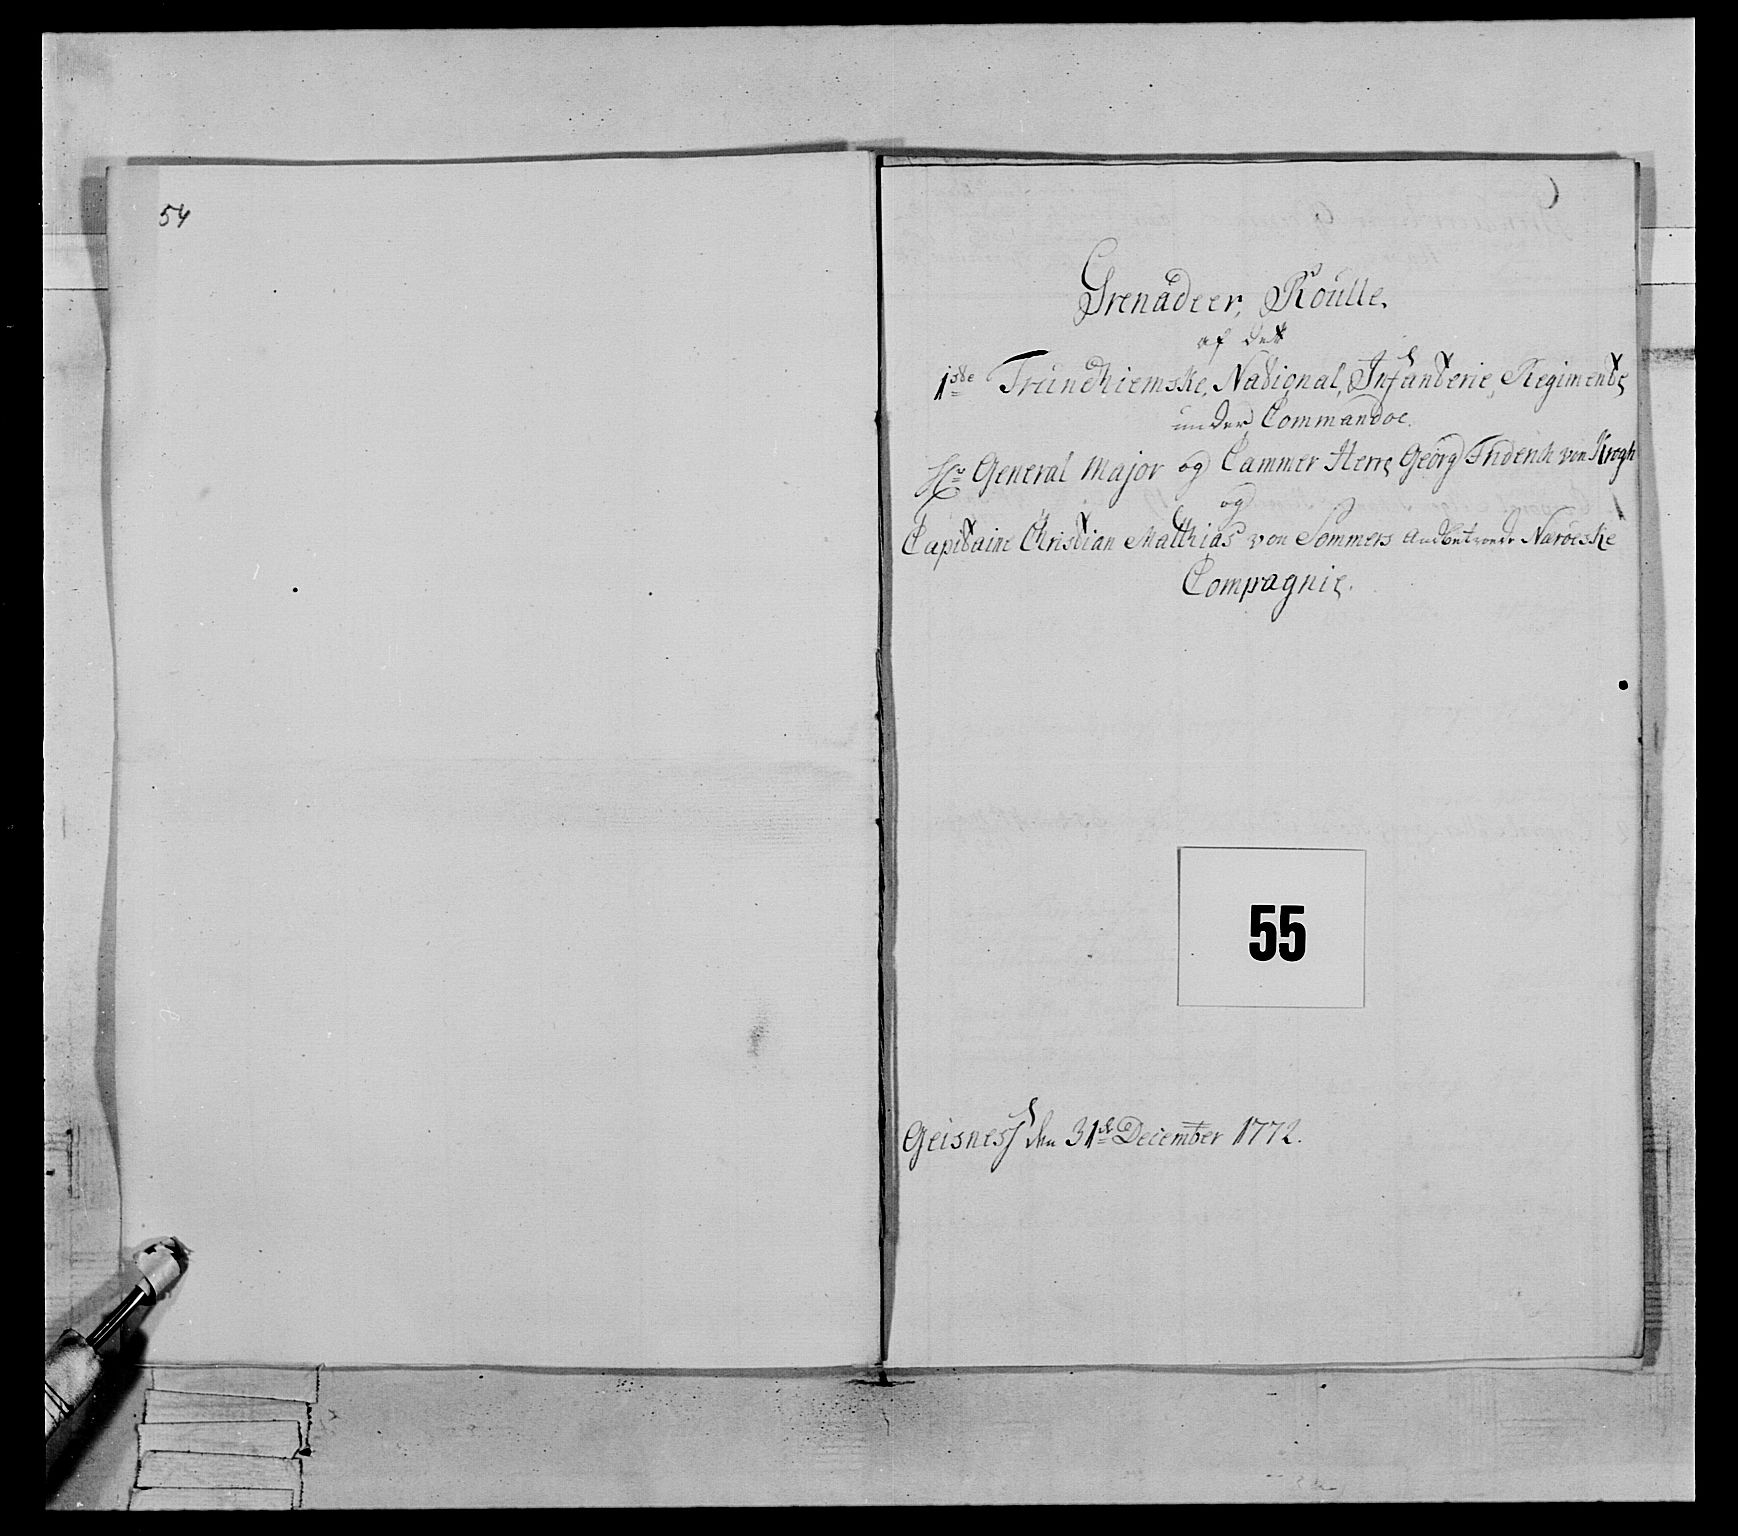 54
Grenadeer, Roulle.
af det
1ste Trundhiemske, National, Infanterie, Regiments
under Commandoe.
Hr General Major og Cammer Herre Georg Friderich von Krogh
og
Capitaine Christian Matthias von Sommers anbetroede Naröeske
Compagnie.
55
Geisness den 31te December 1772.